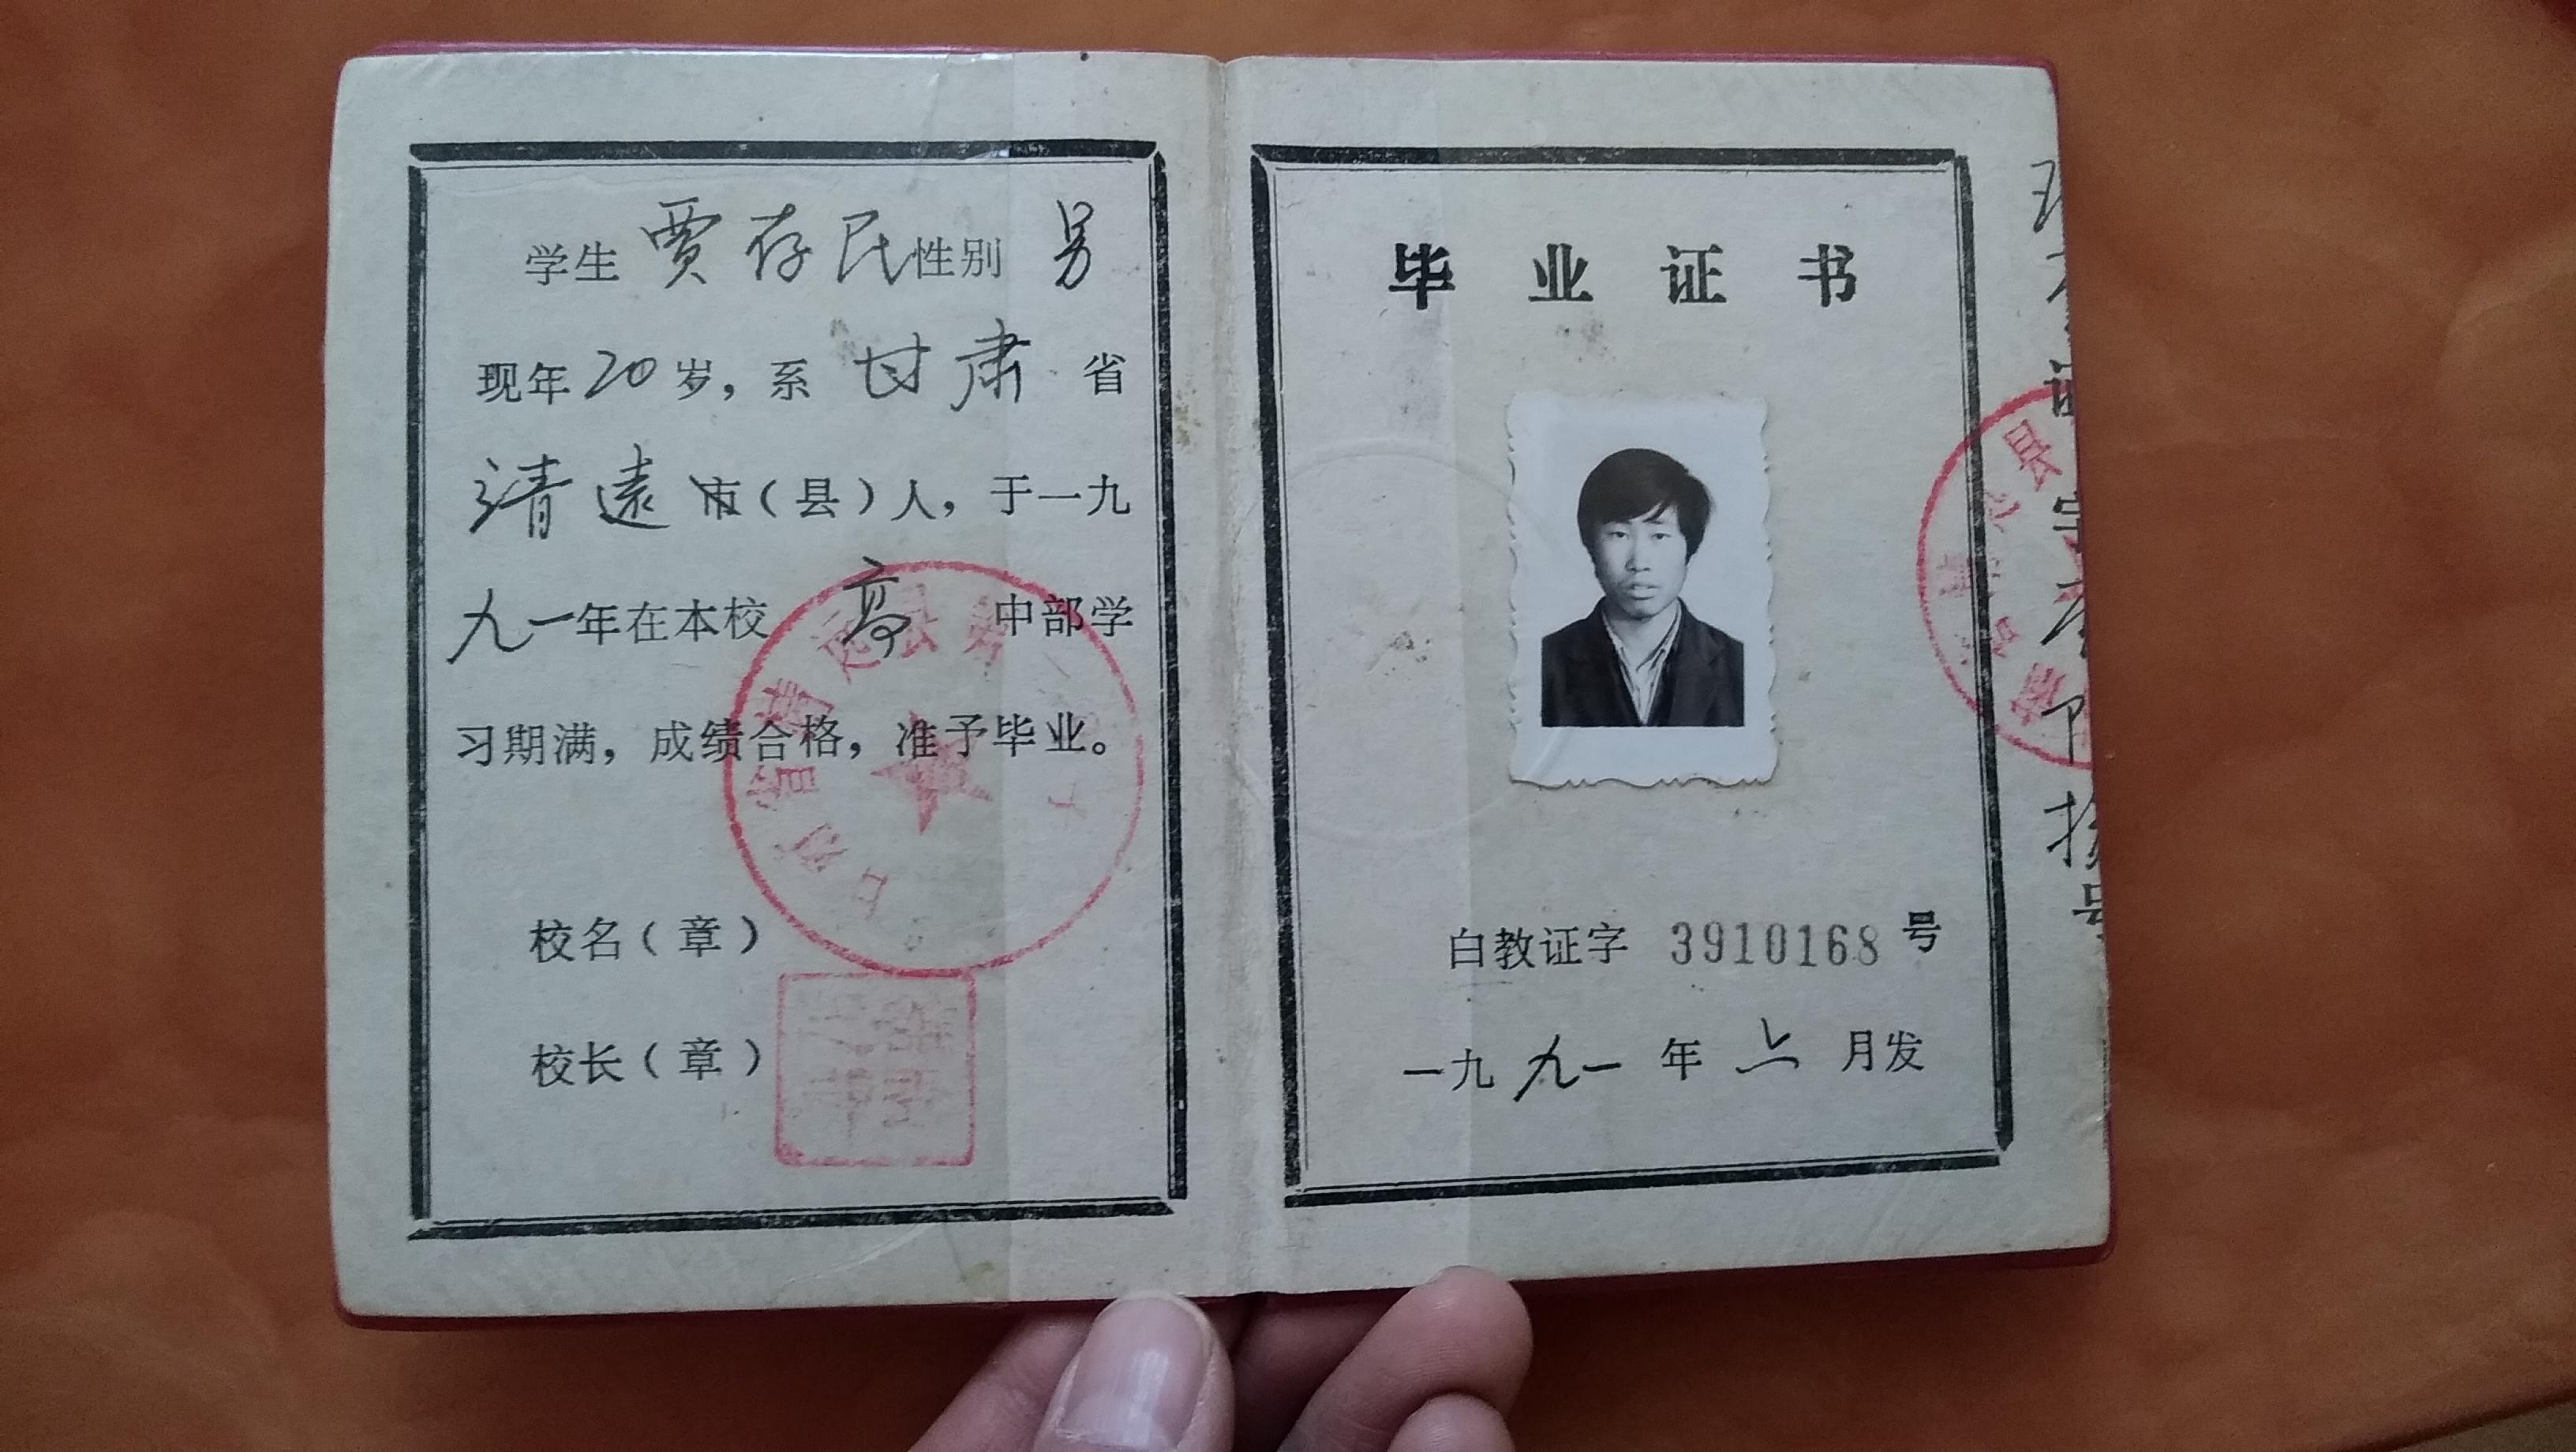 学生 贾存民 性别 男
现年20岁，系 甘肃 省
靖远 市（县）人，于一九
九一年在本校 高 中部学
习期满，成绩合格，准予毕业。
校名（章）
校长（章）
毕业证书
白教证字 3910168 号
一九九一年 六 月发